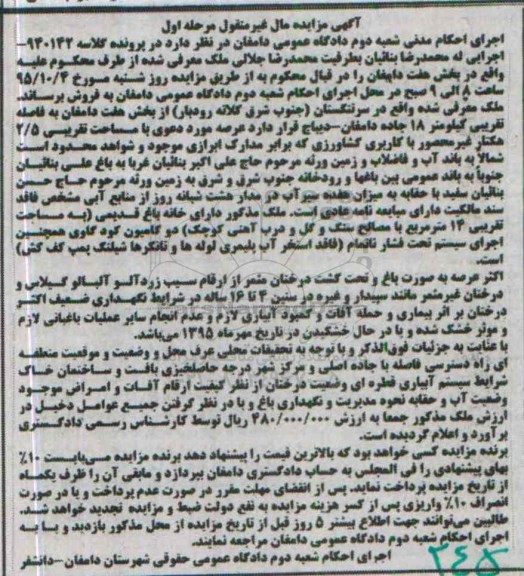 آگهی مزایده مال غیرمنقول مرحله اول
اجرای احکام مدنی شعبه دوم دادگاه عمومی دامغان در نظر دارد در پرونده کلاسه ۹۴۰۱۴۲-
اجرایی له محمدرضا بنائیان بطرفیت محمدرضا جلالی ملک معرفی شده از طرف محکوم علیه
واقع در بخش هفت دامغان را در قبال محکوم به از طریق مزایده روز شنبه مورخ ۹۵/۱۰/۴
ساعت ۸ الی ۹ صبح در محل اجرای احکام شعبه دوم دادگاه عمومی دامغان به فروش برساند.
ملک معرفی شده واقع در سرتنگستان (جنوب شرق کلاته رودبار) از بخش هفت دامغان به فاصله
تقریبی کیلومتر ۱۸ جاده دامغان-دیباج قرار دارد عرصه مورد دعوی با مساحت تقریبی ۲/۵
هکتار غیرمحصور با کاربری کشاورزی که برابر مدارک ابرازی موجود و شواهد محدود است
شمالا به باند آب و فاضلاب و زمین ورثه مرحوم حاج علی اکبر بنائیان غربا به باغ علی بنائیان
جنوبا به باند عمومی بین باغها و رودخانه جنوب شرق و شرق به زمین ورثه مرحوم حاج حسن
بنائیان سفید با حقابه به میزان هفده سیر آب در مدار هشت شبانه روز از منابع آبی مشخص فاقد
سند مالکیت دارای مبایعه نامه عادی است. ملک مذکور دارای خانه باغ قدیمی (به مساحت
تقریبی ۱۴ مترمربع با مصالح سنگ و گل و درب آهنی کوچک) دو کامیون کود گاوی همچنین
اجرای سیستم تحت فشار ناتمام (فاقد استخر آب پلیمری لوله ها و تانکرها شیلنگ پمپ کف کش)
است.
اکثر عرصه به صورت باغ و تحت کشت درختان مثمر از ارقام سیب زردآلو آلبالو گیلاس و
درختان غیرمثمر مانند سپیدار و غیره در سنین ۴ تا ۱۶ ساله در شرایط نگهداری ضعیف اکثر
درختان بر اثر بیماری و حمله آفات و کمبود آبیاری لازم و عدم انجام سایر عملیات باغبانی لازم
و موثر خشک شده و یا در حال خشکیدن در تاریخ مهرماه ۱۳۹۵ می‌باشد.
با عنایت به جزئیات فوق‌الذکر و با توجه به تحقیقات محلی عرف محل و وضعیت و موقعیت منطقه
ای راه دسترسی فاصله با جاده اصلی و مرکز شهر درجه حاصلخیزی بافت و ساختمان خاک
شرایط سیستم آبیاری قطره ای وضعیت درختان از نظر کیفیت ارقام آفات و امراض موجود
وضعیت آب و حقابه نحوه مدیریت و نگهداری باغ و با در نظر گرفتن جمیع عوامل دخیل در
ارزش ملک مذکور جمعا به ارزش ۴۸۰/۰۰۰/۰۰۰ ریال توسط کارشناس رسمی دادگستری
برآورد و اعلام گردیده است.
برنده مزایده کسی خواهد بود که بالاترین قیمت را پیشنهاد دهد برنده مزایده می‌بایست ۱۰%
بهای پیشنهادی را فی المجلس به حساب دادگستری دامغان بپردازد و مابقی آن را ظرف یکماه
از تاریخ مزایده پرداخت نماید. پس از انقضای مهلت مقرر در صورت عدم پرداخت و یا در صورت
انصراف ۱۰% واریزی پس از کسر هزینه مزایده به نفع دولت ضبط و مزایده تجدید خواهد شد.
طالبین می‌توانند جهت اطلاع بیشتر ۵ روز قبل از تاریخ مزایده از محل مذکور بازدید و یا به
اجرای احکام شعبه دوم دادگاه عمومی دامغان مراجعه نمایند.
اجرای احکام شعبه دوم دادگاه عمومی حقوقی شهرستان دامغان -دانشفر
۳۴۵